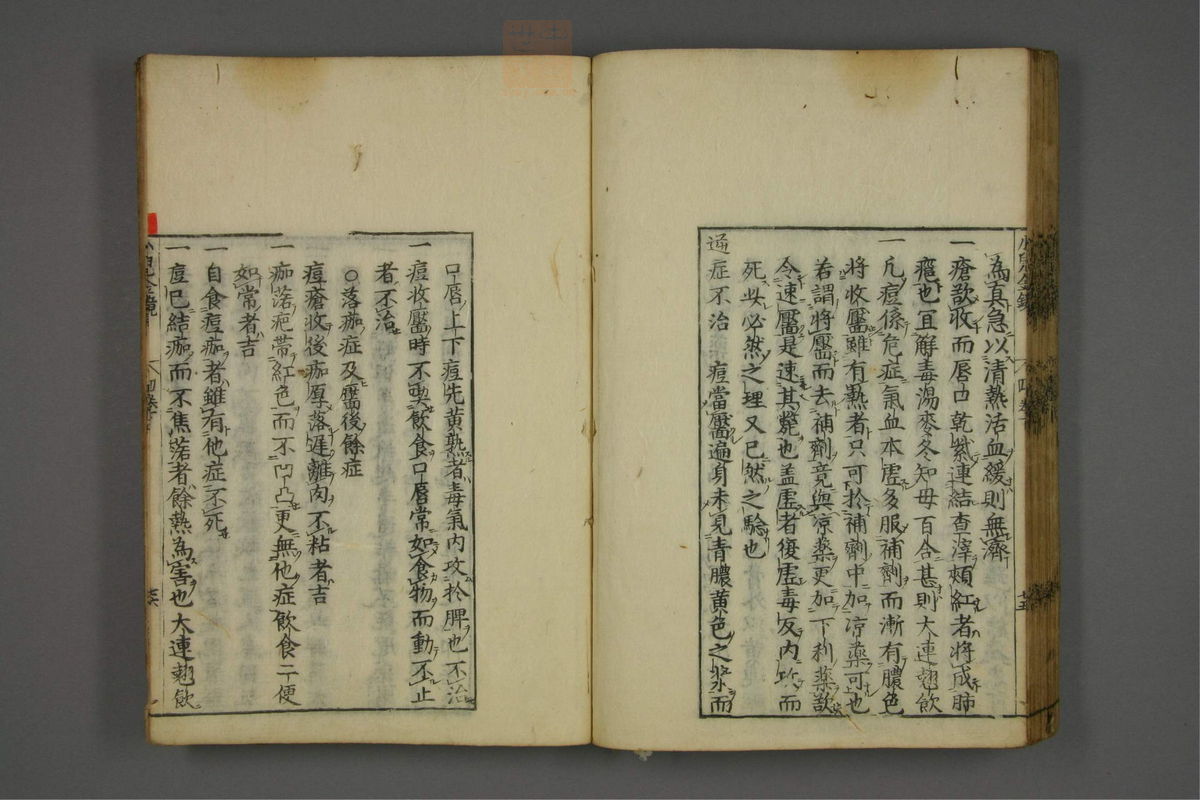 為真急以清熱活血緩則無濟
一瘡歛收而唇口乾紫連結查滓頰紅者將成肺
癰也宜解毒湯麥冬知母百合甚則大連翹飲
一凡痘係危症氣血本虛多服補劑而漸有膿色
將收靨雖有熱者只可於補劑中加凉藥可也
若謂將靨而去補劑竟與凉藥更加下利藥歆
令速靨是速其斃也盖虛者復虛毒反內攻而
死此必然之理又已然之驗也
症不治 痘當靨遍身未見青膿黃色之漿而
口唇上下痘先黃熟者毒氣內攻於脾也不治
一痘收靨時不喫飲食口唇常如食物而動不止
者不治
○落痂症及靨後餘症
一痘瘡收後痂厚落遲離肉不粘者吉
一痂落疤帶紅色而不凹凸更無他症飲食二便
如常者吉
一自食痘痂者雖有他症不死
一痘已結痂而不焦落者餘熱為害也大連翹飲